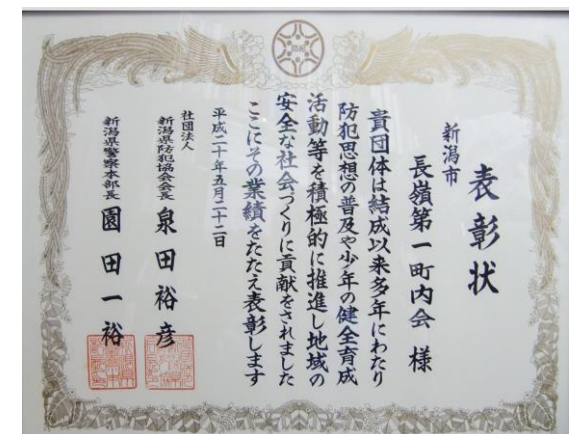 表彰状
新潟市
長嶺第一町内会 様
貴団体は結成以来多年にわたり
防犯思想の普及や少年の健全育成
活動等を積極的に推進し地域の
安全な社会づくりに貢献をされました
ここにその業績をたたえ表彰します
平成二十年五月二十二日
社団法人
新潟県防犯協会会長 泉田裕彦
新潟県警察本部長 園田一裕